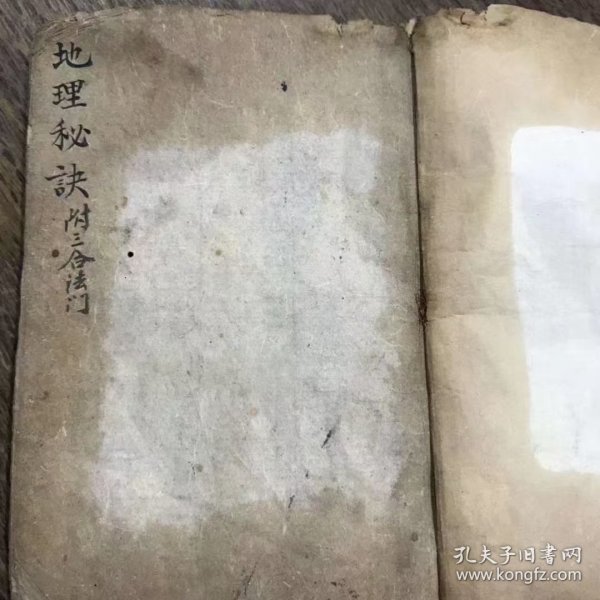 地理秘訣
附三合法门
孔夫子旧书网
www.kongfz.com